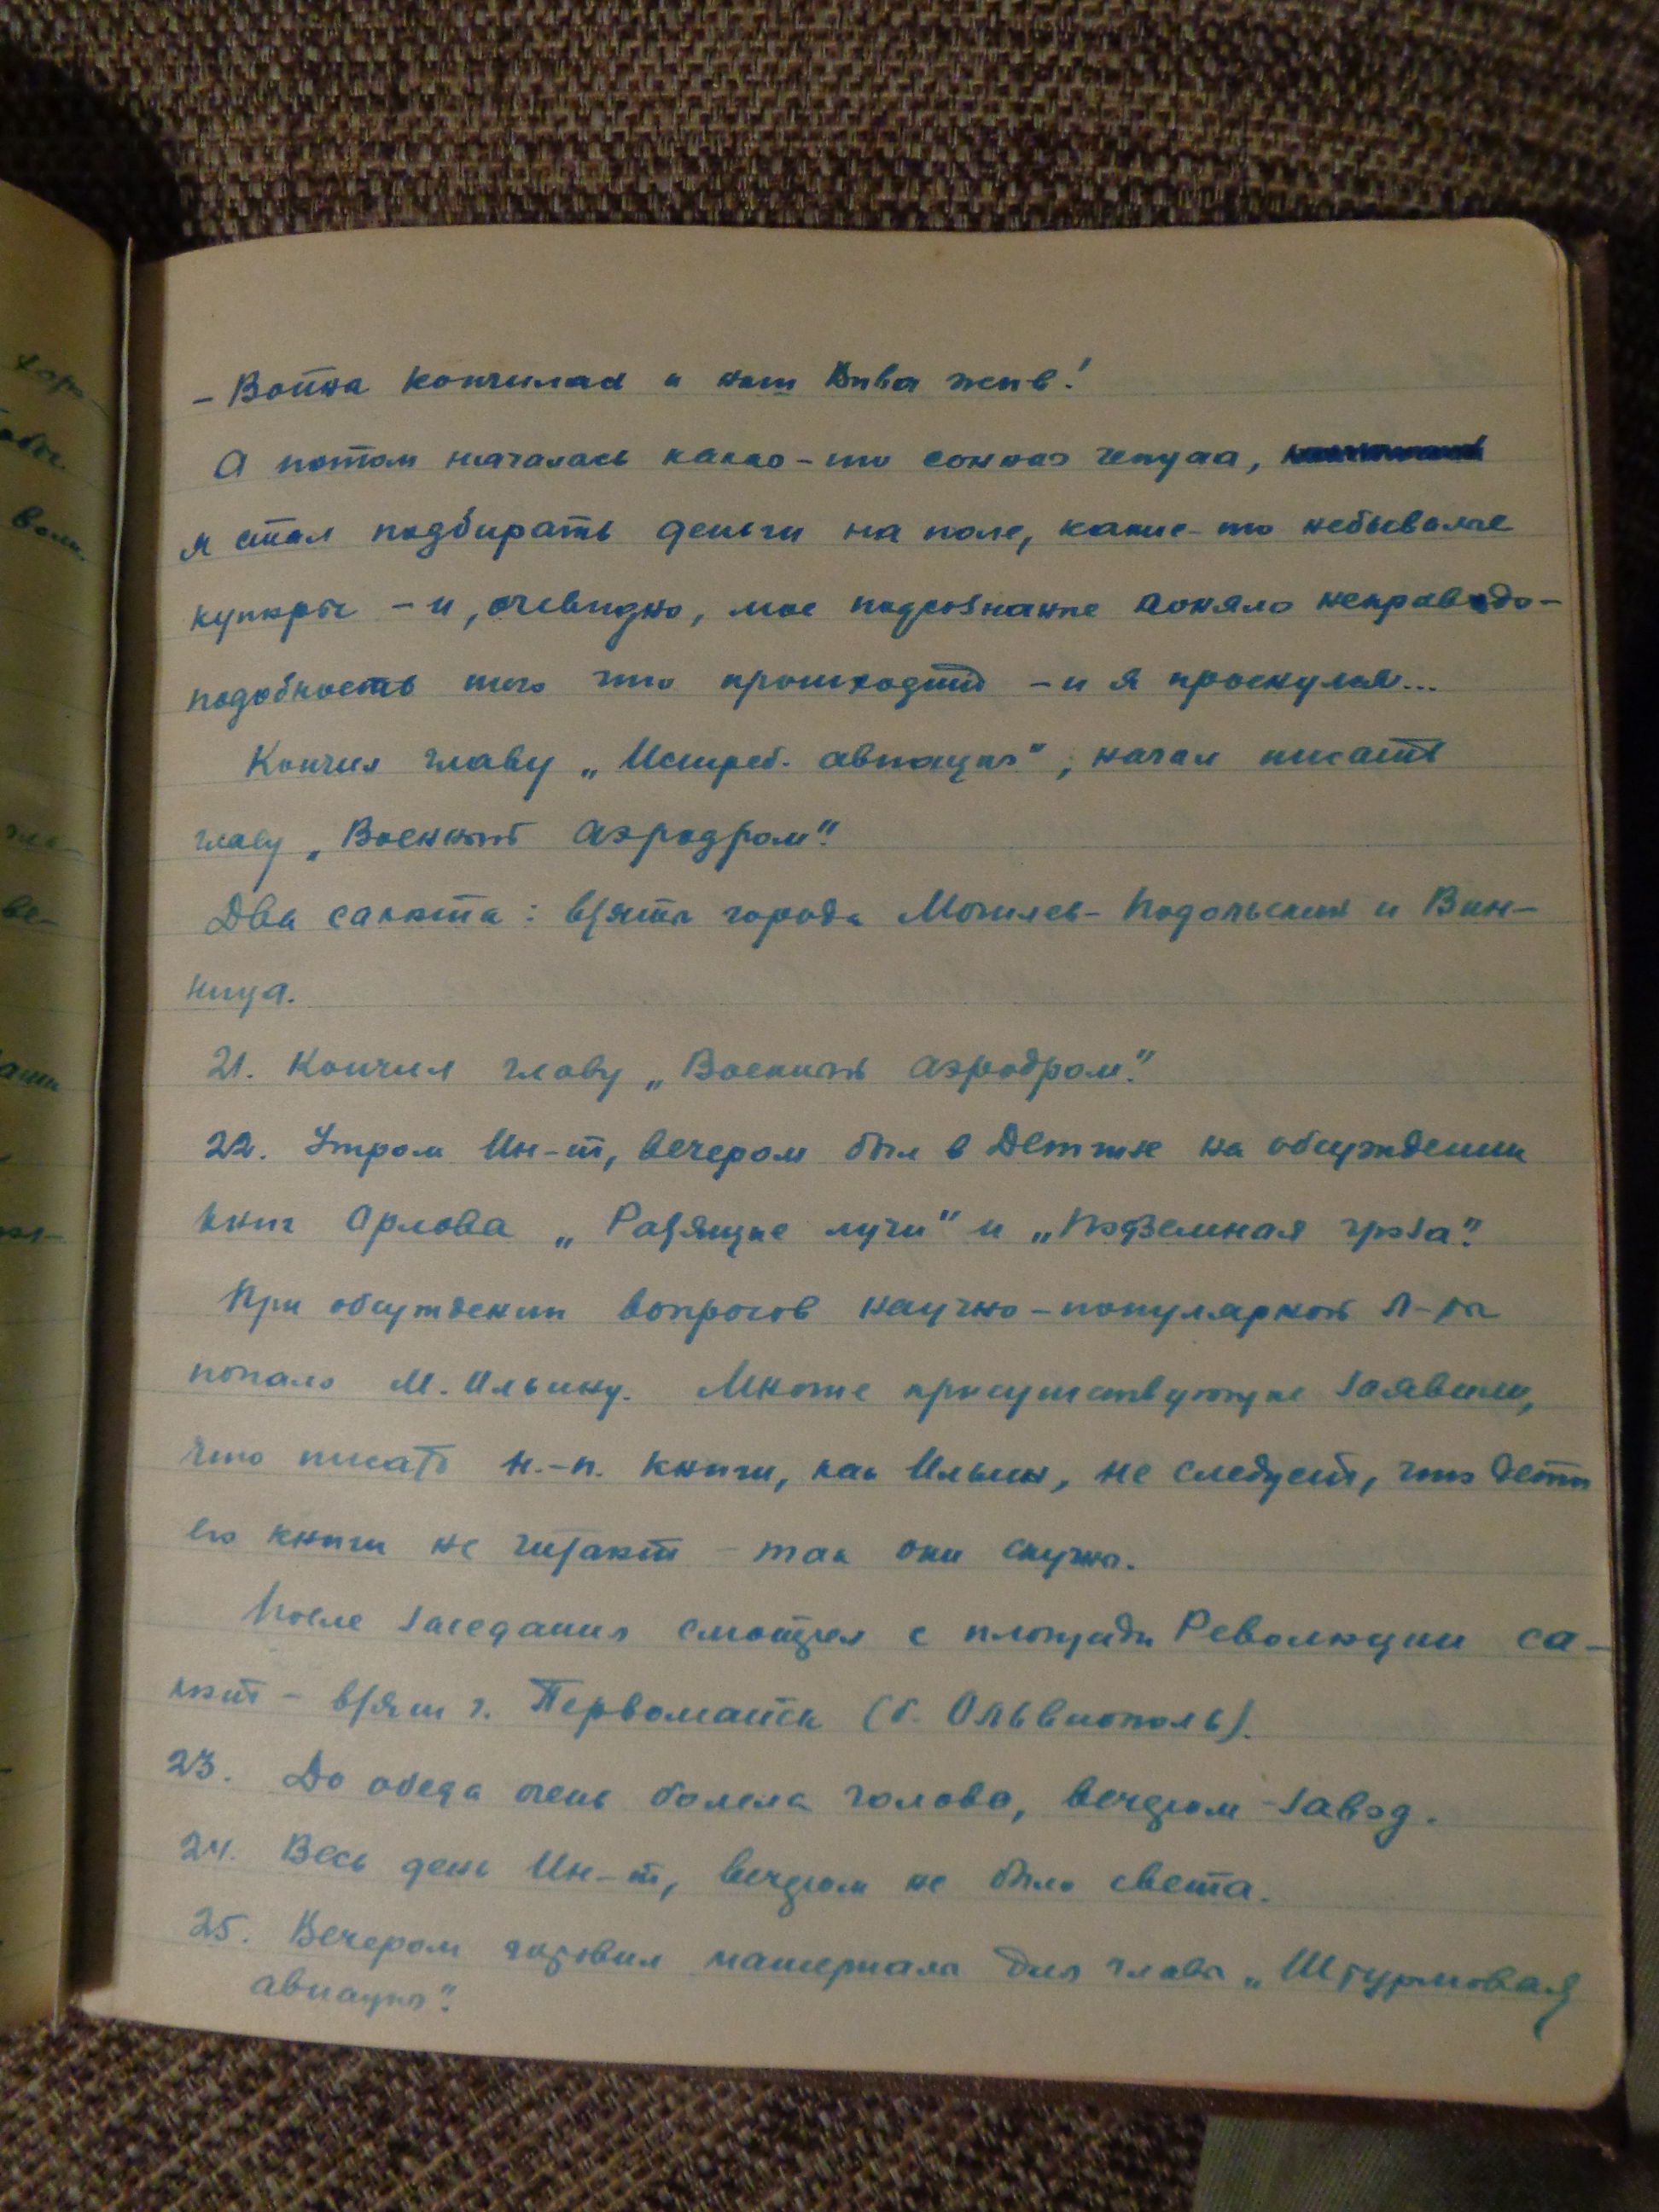 - Война кончилась и наш Вива жив!
А потом началась какая-то сонная чепуха,
я стал подбирать деньги на поле, какие-то небывалые
купюры - и, очевидно, мое подсознание поняло неправдо-
подобность того что происходит - и я проснулся...
Кончил главу „Истреб. авиация", начал писать
главу „Военный аэродром".
Два салюта: взяты города Могилев-Подольский и Вин-
ница.
21. Кончил главу „Военный аэродром".
22. Утром Ин-т, вечером был в Детгизе на обсуждении
книг Орлова „Разящие лучи" и „Подземная гроза".
При обсуждении вопросов научно-популярной л-ры
попало М. Ильину. Многие присутствующие заявили,
что писать н.-п. книги, как Ильин, не следует, что дети
его книги не читают - так они скучны.
После заседания смотрел с площади Революции са-
лют - взят г. Первомайск (б. Ольвиополь).
23. До обеда очень болела голова, вечером - завод.
24. Весь день Ин-т, вечером не было света.
25. Вечером готовил материалы для главы „Штурмовая
авиация".